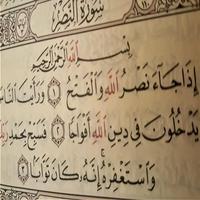 سُورَةُ النَّصْرِ
بِسْمِ اللَّهِ الرَّحْمَٰنِ الرَّحِيمِ
إِذَا جَاءَ نَصْرُ اللَّهِ وَالْفَتْحُ ١ وَرَأَيْتَ النَّاسَ
يَدْخُلُونَ فِي دِينِ اللَّهِ أَفْوَاجًا ٢ فَسَبِّحْ بِحَمْدِ
وَاسْتَغْفِرْهُ إِنَّهُ كَانَ تَوَّابًا ٣